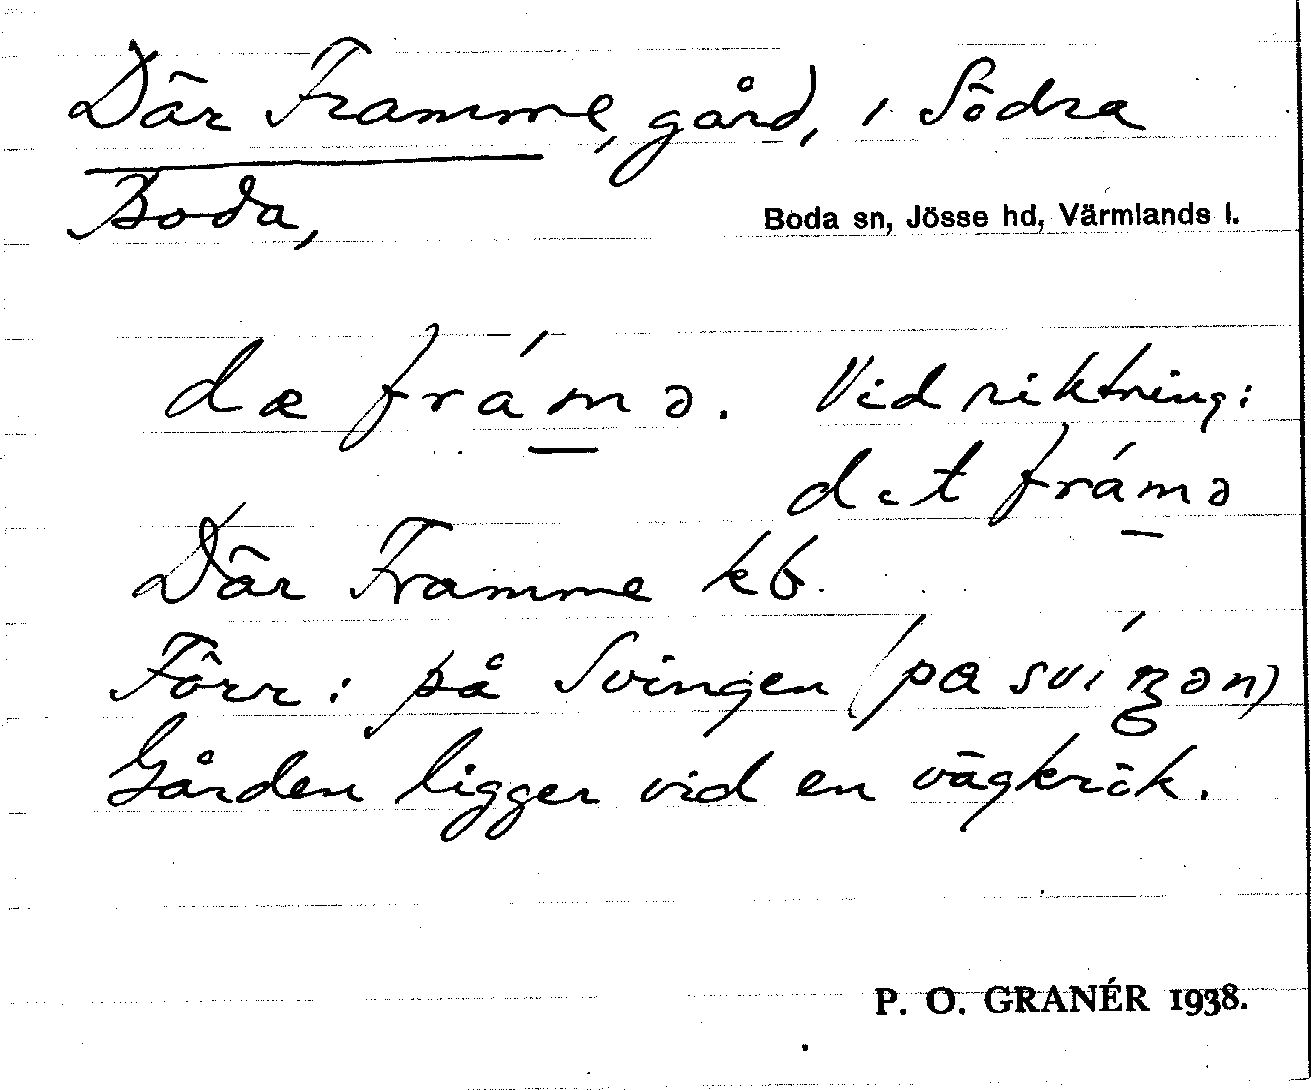 Där Framme, gård, i Södra
Boda,
Boda sn, Jösse hd, Värmlands l.
dæ frám̲ə. Vid riktning:
dit frám̲ə
Där Framme kb.
Förr: på Svingen (pa svíŋən)
Gården ligger vid en vägkrök.
P. O. GRANÉR 1938.